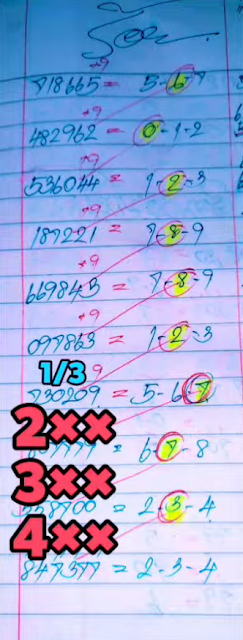 +9
718665 = 5-6-7
+9
482962 = 0-1-2
+9
536044 = 1-2-3
+9
187221 = 7-8-9
+9
669843 = 7-8-9
+9
097863 = 1-2-3
1/3 9
730209 = 5-6-7
2××
= 6-7-8
3××
58700 = 2-3-4
4××
847377 = 2-3-4